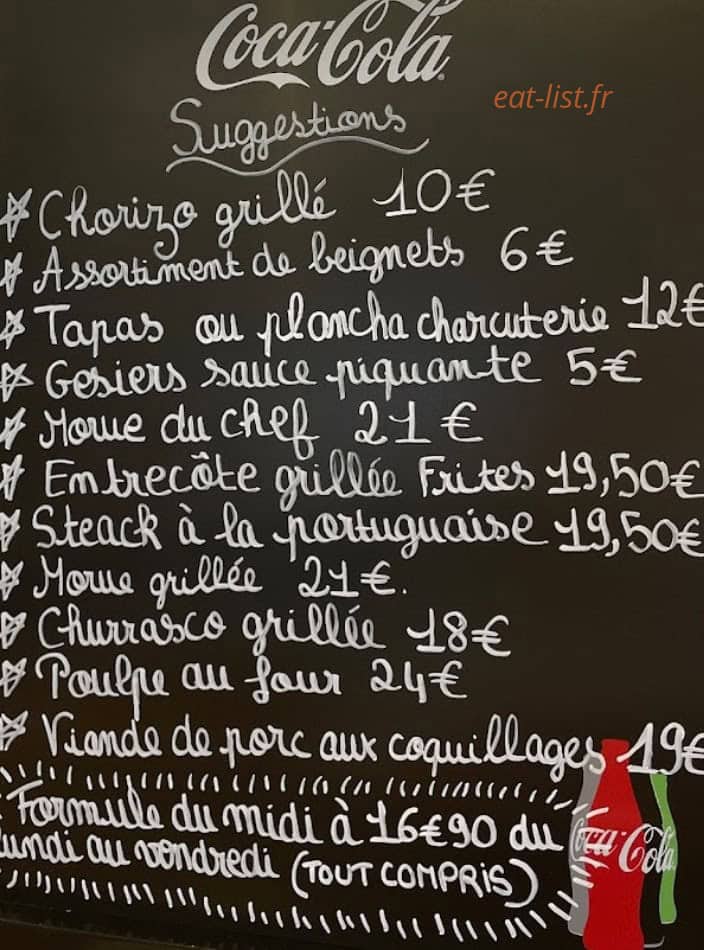 Coca-Cola
eat-list.fr
Suggestions
Chorizo grillé 10€
Assortiment de beignets 6€
Tapas ou plancha charcuterie 12€
Gesiers sauce piquante 5€
Morue du chef 21€
Entrecôte grillée Frites 19,50€
Steack à la portuguaise 19,50€
Morue grillée 21€.
Churrasco grillée 18€
Poulpe au four 24€
Viande de porc aux coquillages 19€
Formule du midi à 16€90 du
lundi au vendredi (TOUT COMPRIS)
Coca-Cola